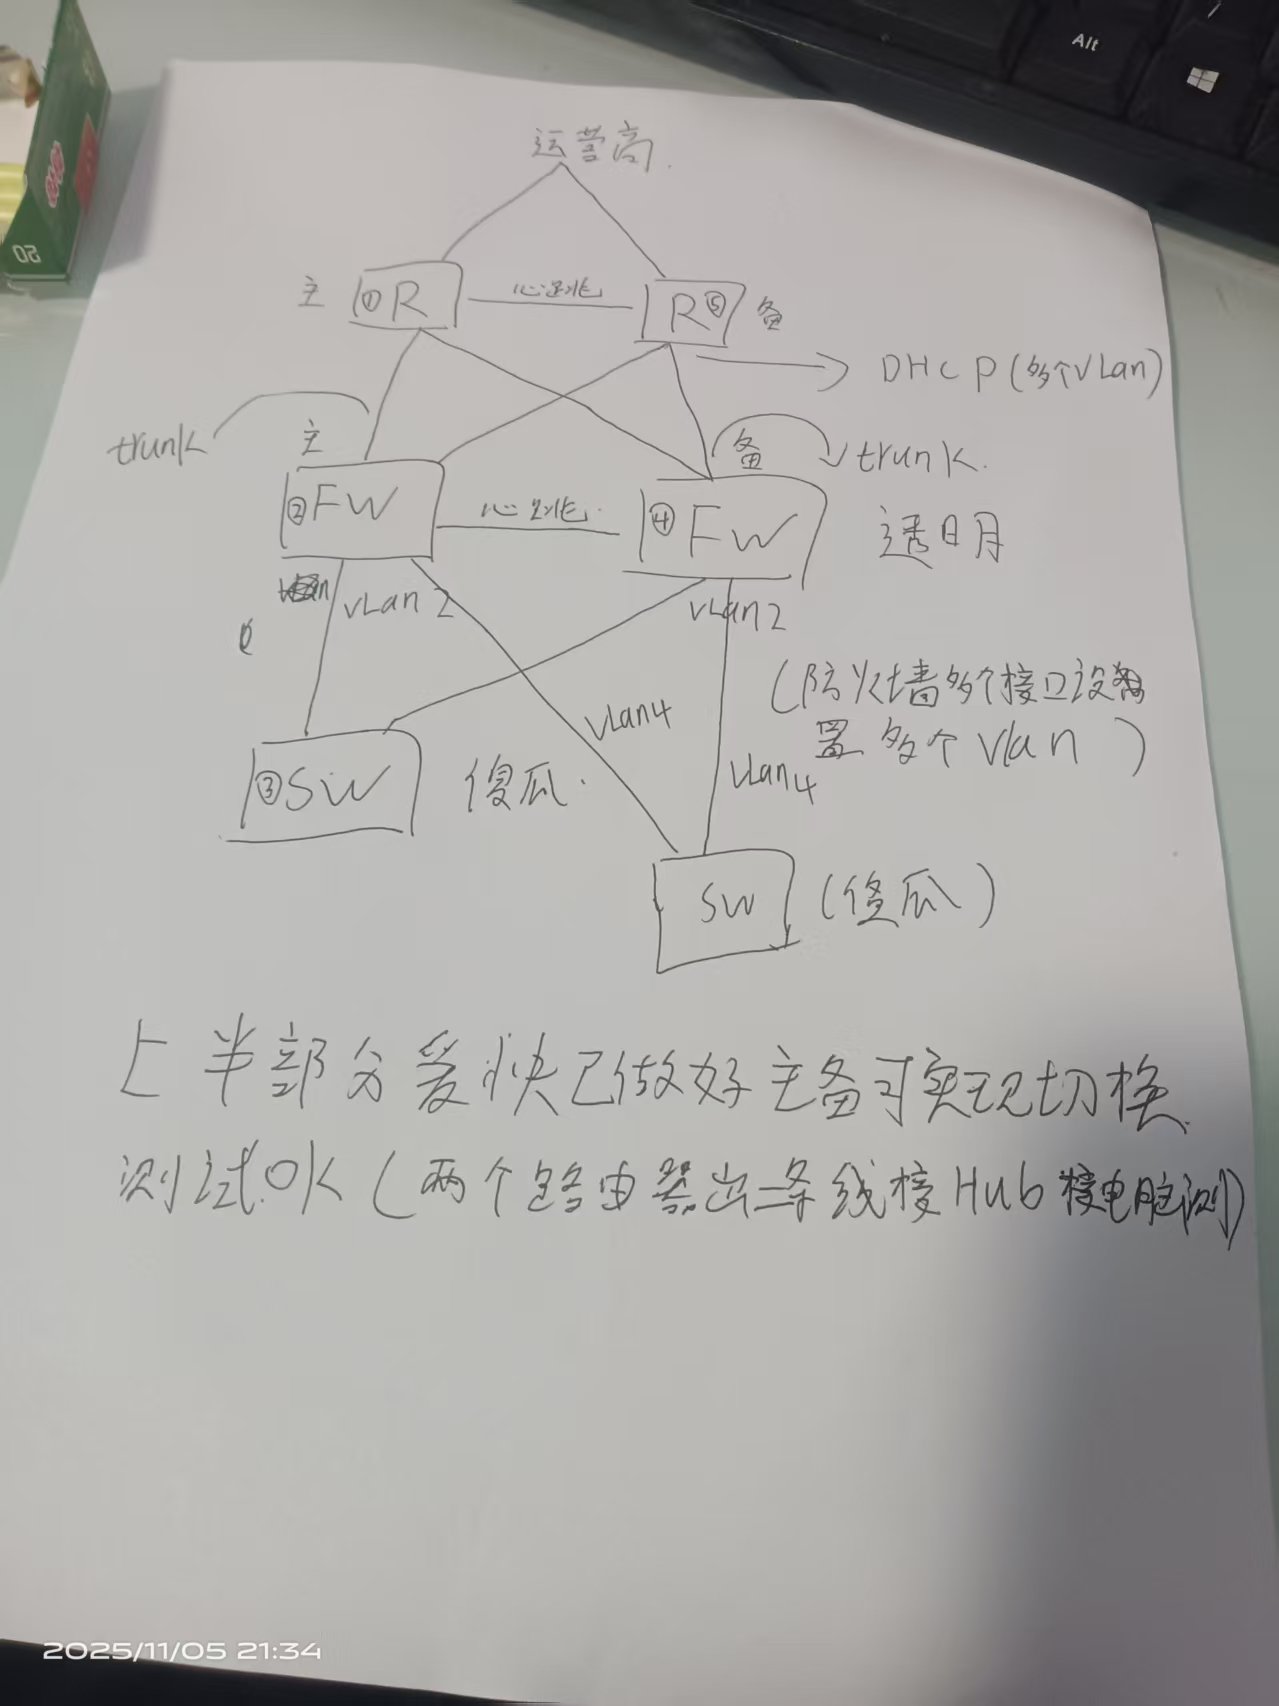 Alt
50
运营商.
主 ①R 心跳 R⑤ 备
DHCP(多个VLan)
trunk 主 备 trunk.
②FW 心跳 ④FW 透明
VLan 2 VLan 2
(防火墙多个接口设
置 多个 Vlan )
VLan4
VLan4
③SW 傻瓜.
SW (傻瓜)
上半部分爱快已做好主备可实现切换
测试OK (两个路由器出一条线接Hub 接电脑测)
2025/11/05 21:34